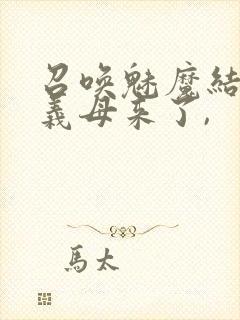 召唤魅魔结
義母来了,
馬太